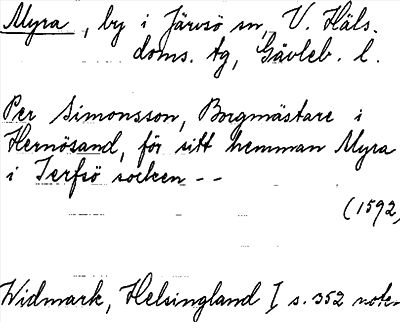 Myra, by i Järvsö sn, V. Häls.
doms. tg, Gävleb. l.
Per Simonsson, Borgmästare i
Hernösand, för sitt hemman Myra
i Jerfsö socken --
(1592)
Widmark, Helsingland I s. 352 noten